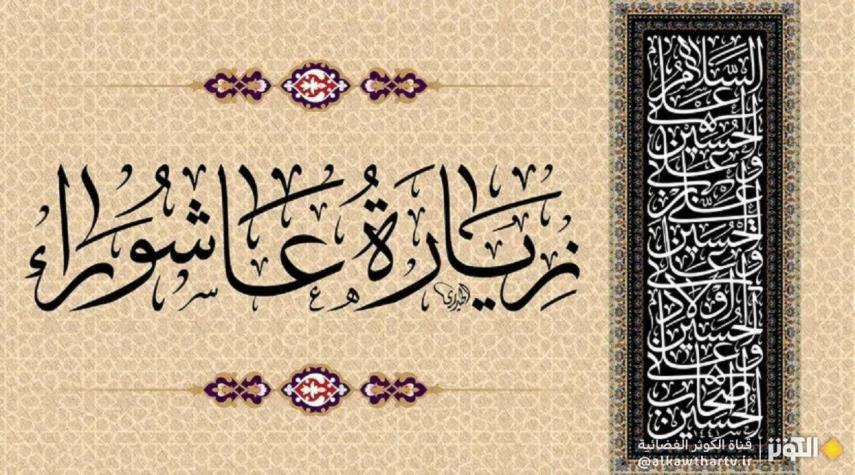 زِيَارَةُ عَاشُورَاء
السَّلَامُ
عَلَى
الحُسَيْنِ
وَعَلَى
عَلِيِّ بْنِ
الحُسَيْنِ
وَعَلَى
أَوْلَادِ
الحُسَيْنِ
وَعَلَى
أَصْحَابِ
الحُسَيْنِ
الكوثر
قناة الكوثر الفضائية
@alkawthartv.ir